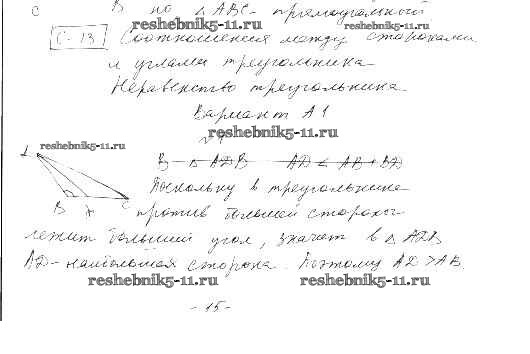 В но △ ABC - прямоугольный
reshebnik5-11.ru
reshebnik5-11.ru
С-13 Соотношения между сторонами
и углами треугольника
Неравенство треугольника
Вариант А1
reshebnik5-11.ru
reshebnik5-11.ru
В △ ADB AD < AB + BD
Поскольку в треугольнике
B D C
против большей стороны
лежит больший угол, значит в △ ADB
AD - наибольшая сторона. Поэтому AD > AB.
reshebnik5-11.ru
reshebnik5-11.ru
- 15 -